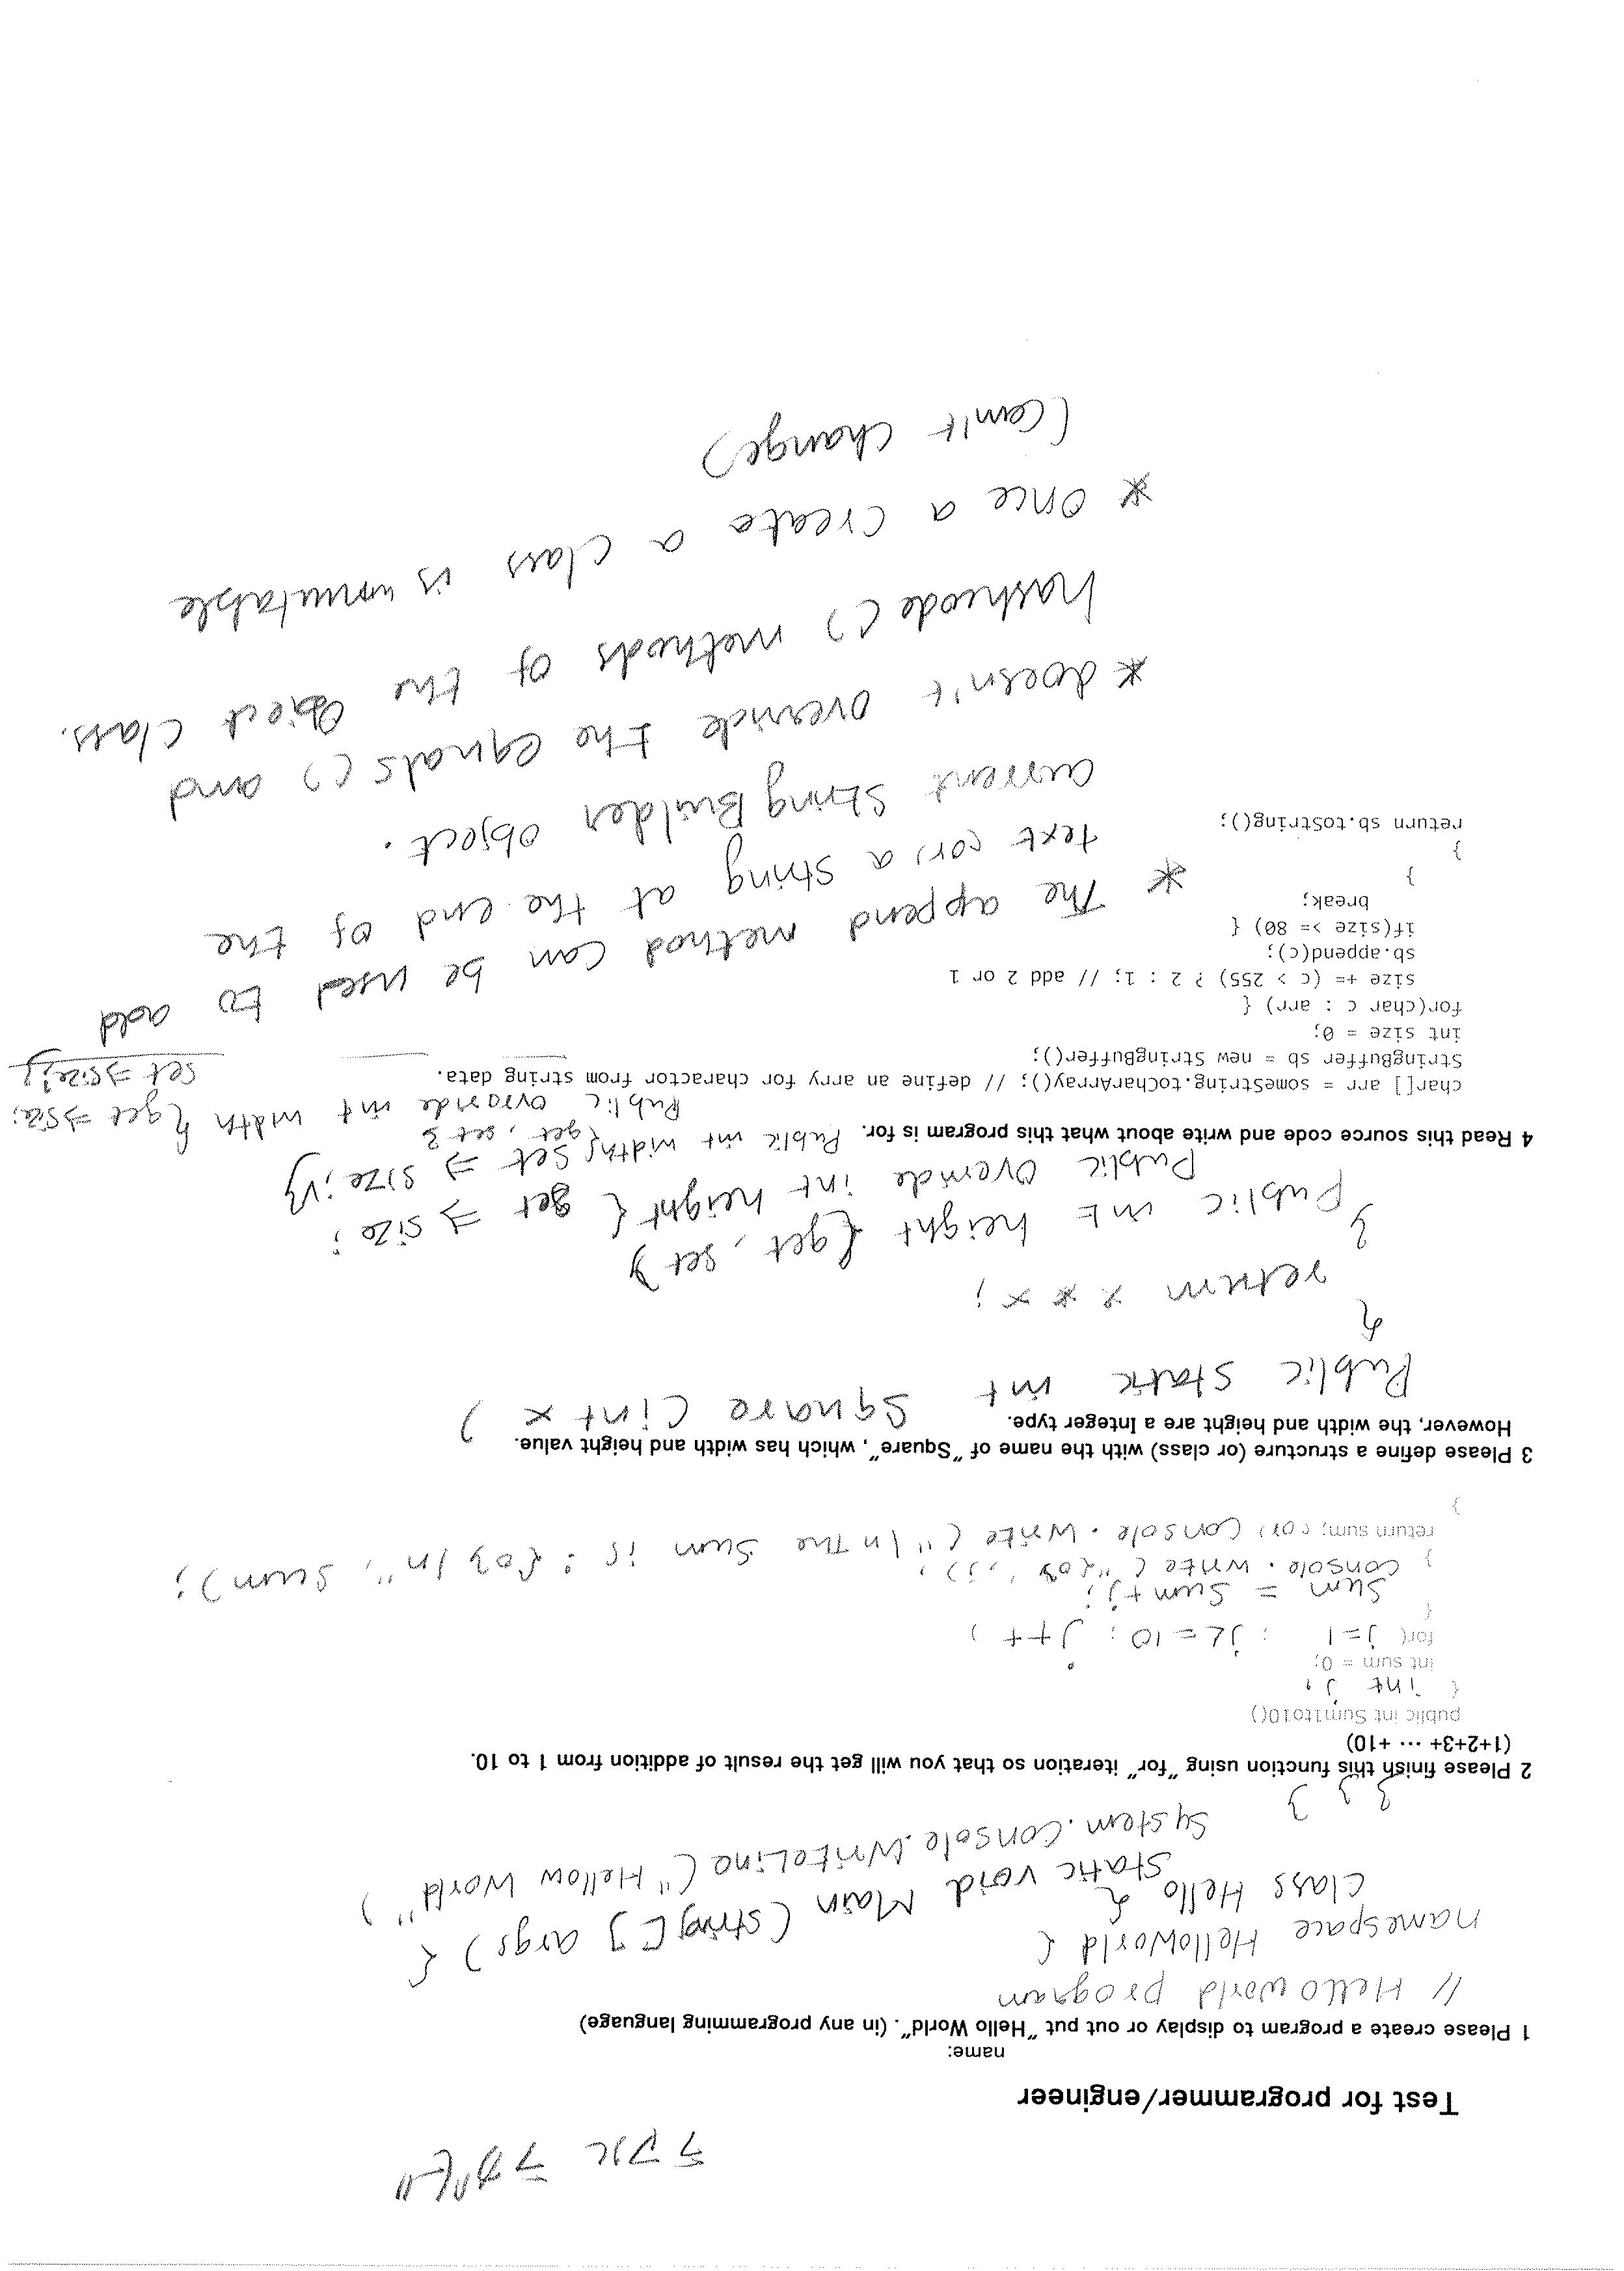 Test for programmer/engineer
name:
1 Please create a program to display or out put "Hello World". (in any programming language)
// Hello world program
namespace HelloWorld {
class Hello {
static void Main (string[] args) {
System.Console.WriteLine ("Hellow World")
} } }
2 Please finish this function using "for" iteration so that you will get the result of addition from 1 to 10.
(1+2+3+ ⋯ +10)
public int Sum1to10()
{ int j;
int sum = 0;
for( j=1 ; j<=10; j++ )
{
Sum = Sum+j;
} Console.write ("{0}", j);
return sum; (or) Console.Write ("\n The Sum is : {0} \n", Sum);
}
3 Please define a structure (or class) with the name of "Square", which has width and height value.
However, the width and height are a Integer type.
Square (int x )
Public Static int
{
return x * x ;
}
Public int height {get, set}
Public Override int height { get => size;
set => size;}
4 Read this source code and write about what this program is for.
Public int width {get, set}
Public override int width {get => size;
set => size;}
char[] arr = someString.toCharArray(); // define an arry for charactor from string data.
StringBuffer sb = new StringBuffer();
int size = 0;
for(char c : arr) {
size += (c > 255) ? 2 : 1; // add 2 or 1
sb.append(c);
if(size >= 80) {
break;
}
}
return sb.toString();
* The append method can be used to add
text (or) a String at the end of the
current StringBuilder object.
* doesn't override the equals() and
hashcode() methods of the Object class.
* Once a create a class is
(can't change)